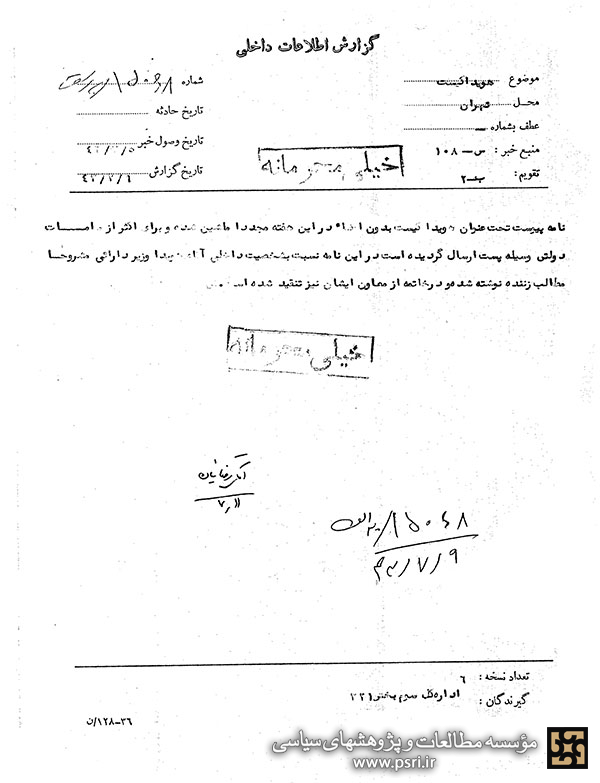 گزارش اطلاعات داخلی
موضوع هویدا کیست
محل تهران
عطف بشماره —
منبع خبر : س-۱۰۸
تقویم : ب-۲
شماره ۱۵۰۶۸
تاریخ حادثه
تاریخ وصول خبر
تاریخ گزارش
خیلی محرمانه
نامه پیوست تحت عنوان هویدا کیست بدون امضاء در این هفته مجددا ماشین شده و برای اکثر از مقامات
دولتی وسیله پست ارسال گردیده است در این نامه نسبت بشخصیت داخلی آقای هویدا وزیر دارائی مشروحا
مطالب زننده نوشته شده و در خاتمه از معاون ایشان نیز تنقید شده است
خیلی محرمانه
۱۵۰۶۸
تعداد نسخه : ۶
گیرندگان : اداره کل سوم بخش ۳۲۱
۳۶-۱۲۸/ن
مؤسسه مطالعات و پژوهشهای سیاسی
www.psri.ir